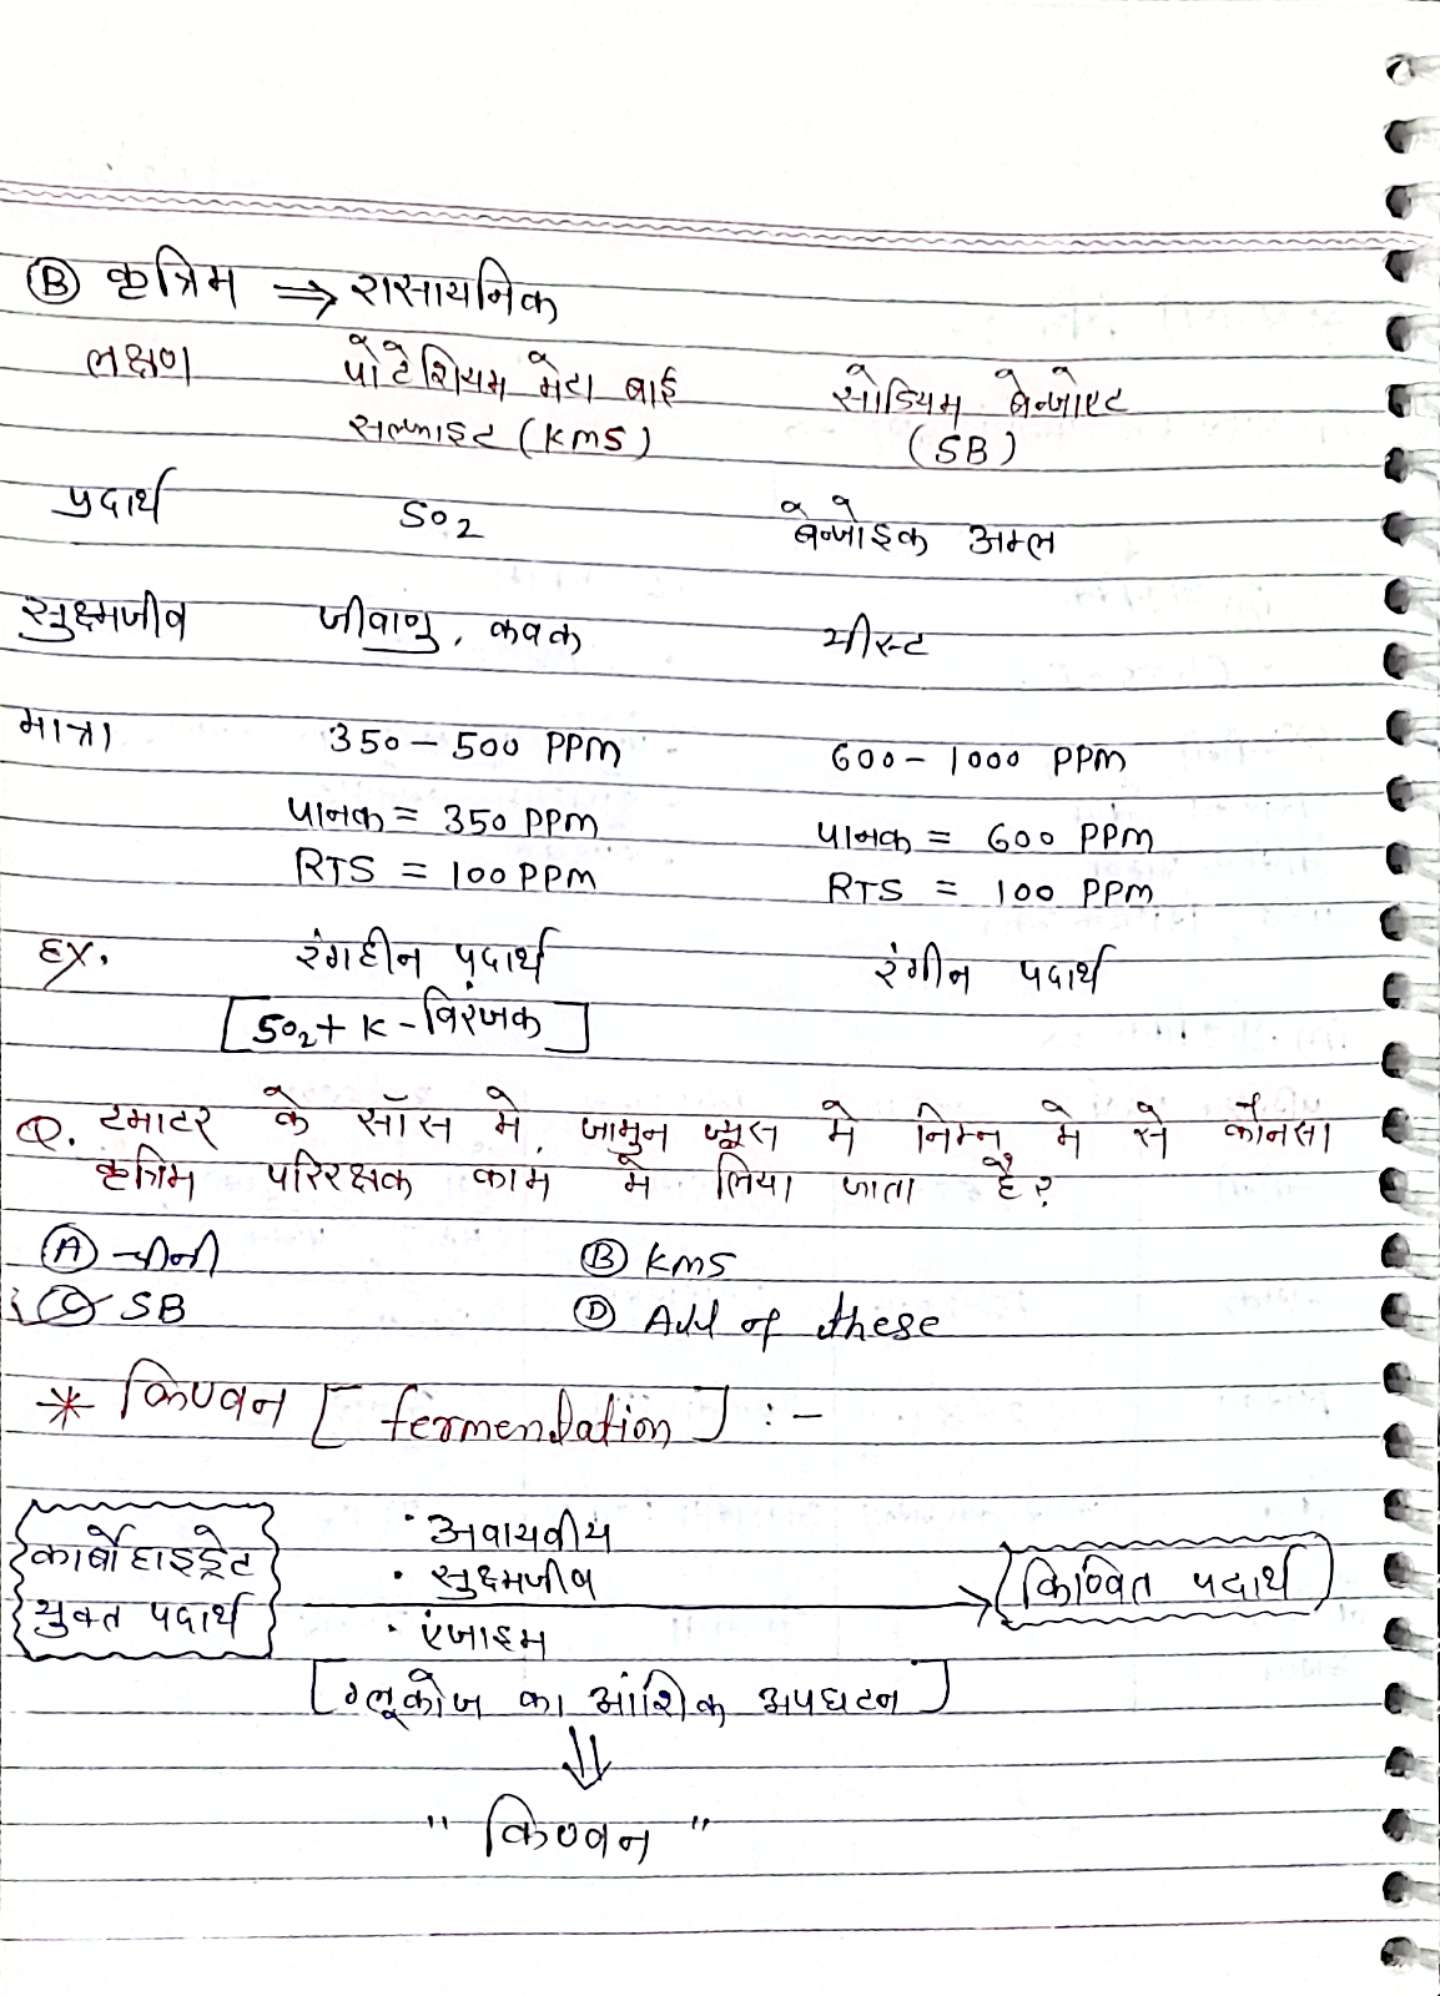 (B) कृत्रिम ⇒ रासायनिक
लक्षण पोटेशियम मेटा बाई सोडियम बेन्जोएट
सल्फाइट (KMS) (SB)
प्रदार्थ SO2 बेन्जोइक अम्ल
सुक्ष्मजीव जीवाणु, कवक यीस्ट
मात्रा 350 - 500 PPM 600 - 1000 PPM
पानक = 350 PPM पानक = 600 PPM
RTS = 100 PPM RTS = 100 PPM
Ex. रंगहीन पदार्थ रंगीन पदार्थ
[SO2 + K - विरंजक]
Q. टमाटर के सॉस मे, जामुन ज्यूस मे निम्न मे से कौनसा
कृत्रिम परिरक्षक काम मे लिया जाता है?
(A) चीनी (B) KMS
(C) SB (D) All of these
* किण्वन [fermendation] :-
कार्बोहाइड्रेट • अवायवीय
• सुक्ष्मजीव → किण्वित पदार्थ
युक्त पदार्थ • एंजाइम
[ग्लूकोज का आंशिक अपघटन]
⇓
" किण्वन "